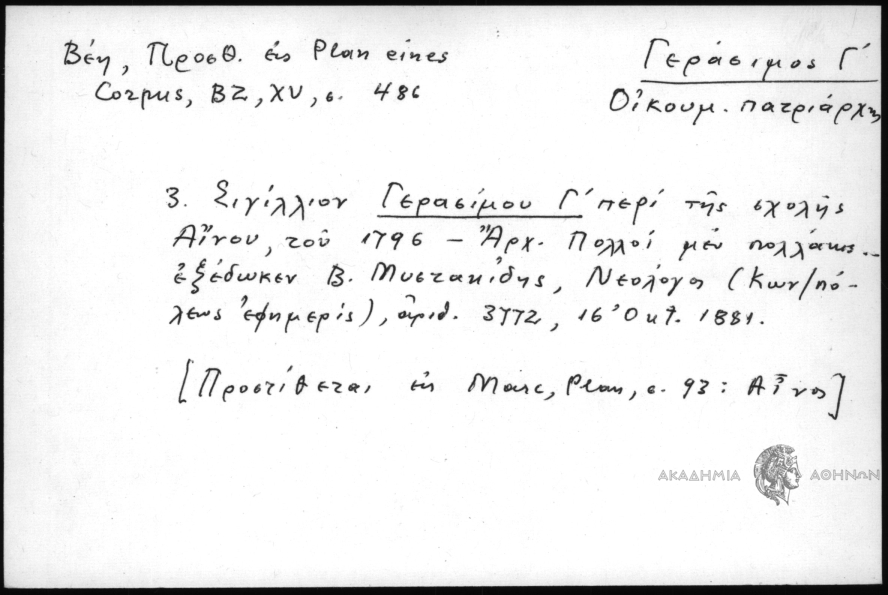 Βέη, Προσθ. εἰς Plan eines
Corpus, BZ, XV, σ. 486
Γεράσιμος Γ΄
Οἰκουμ. πατριάρχης
3. Σιγίλλιον Γερασίμου Γ΄ περί τῆς σχολῆς
Αἴνου, τοῦ 1796 – Ἀρχ. Πολλοί μέν πολλάκις..
ἐξέδωκεν Β. Μυστακίδης, Νεολόγος (Κων/πό-
λεως ἐφημερίς), ἀριθ. 3772, 16 Ὀκτ. 1881.
[Προστίθεται εἰς Marc, Plan, σ. 93: Αἶνος]
ΑΚΑΔΗΜΙΑ ΑΘΗΝΩΝ